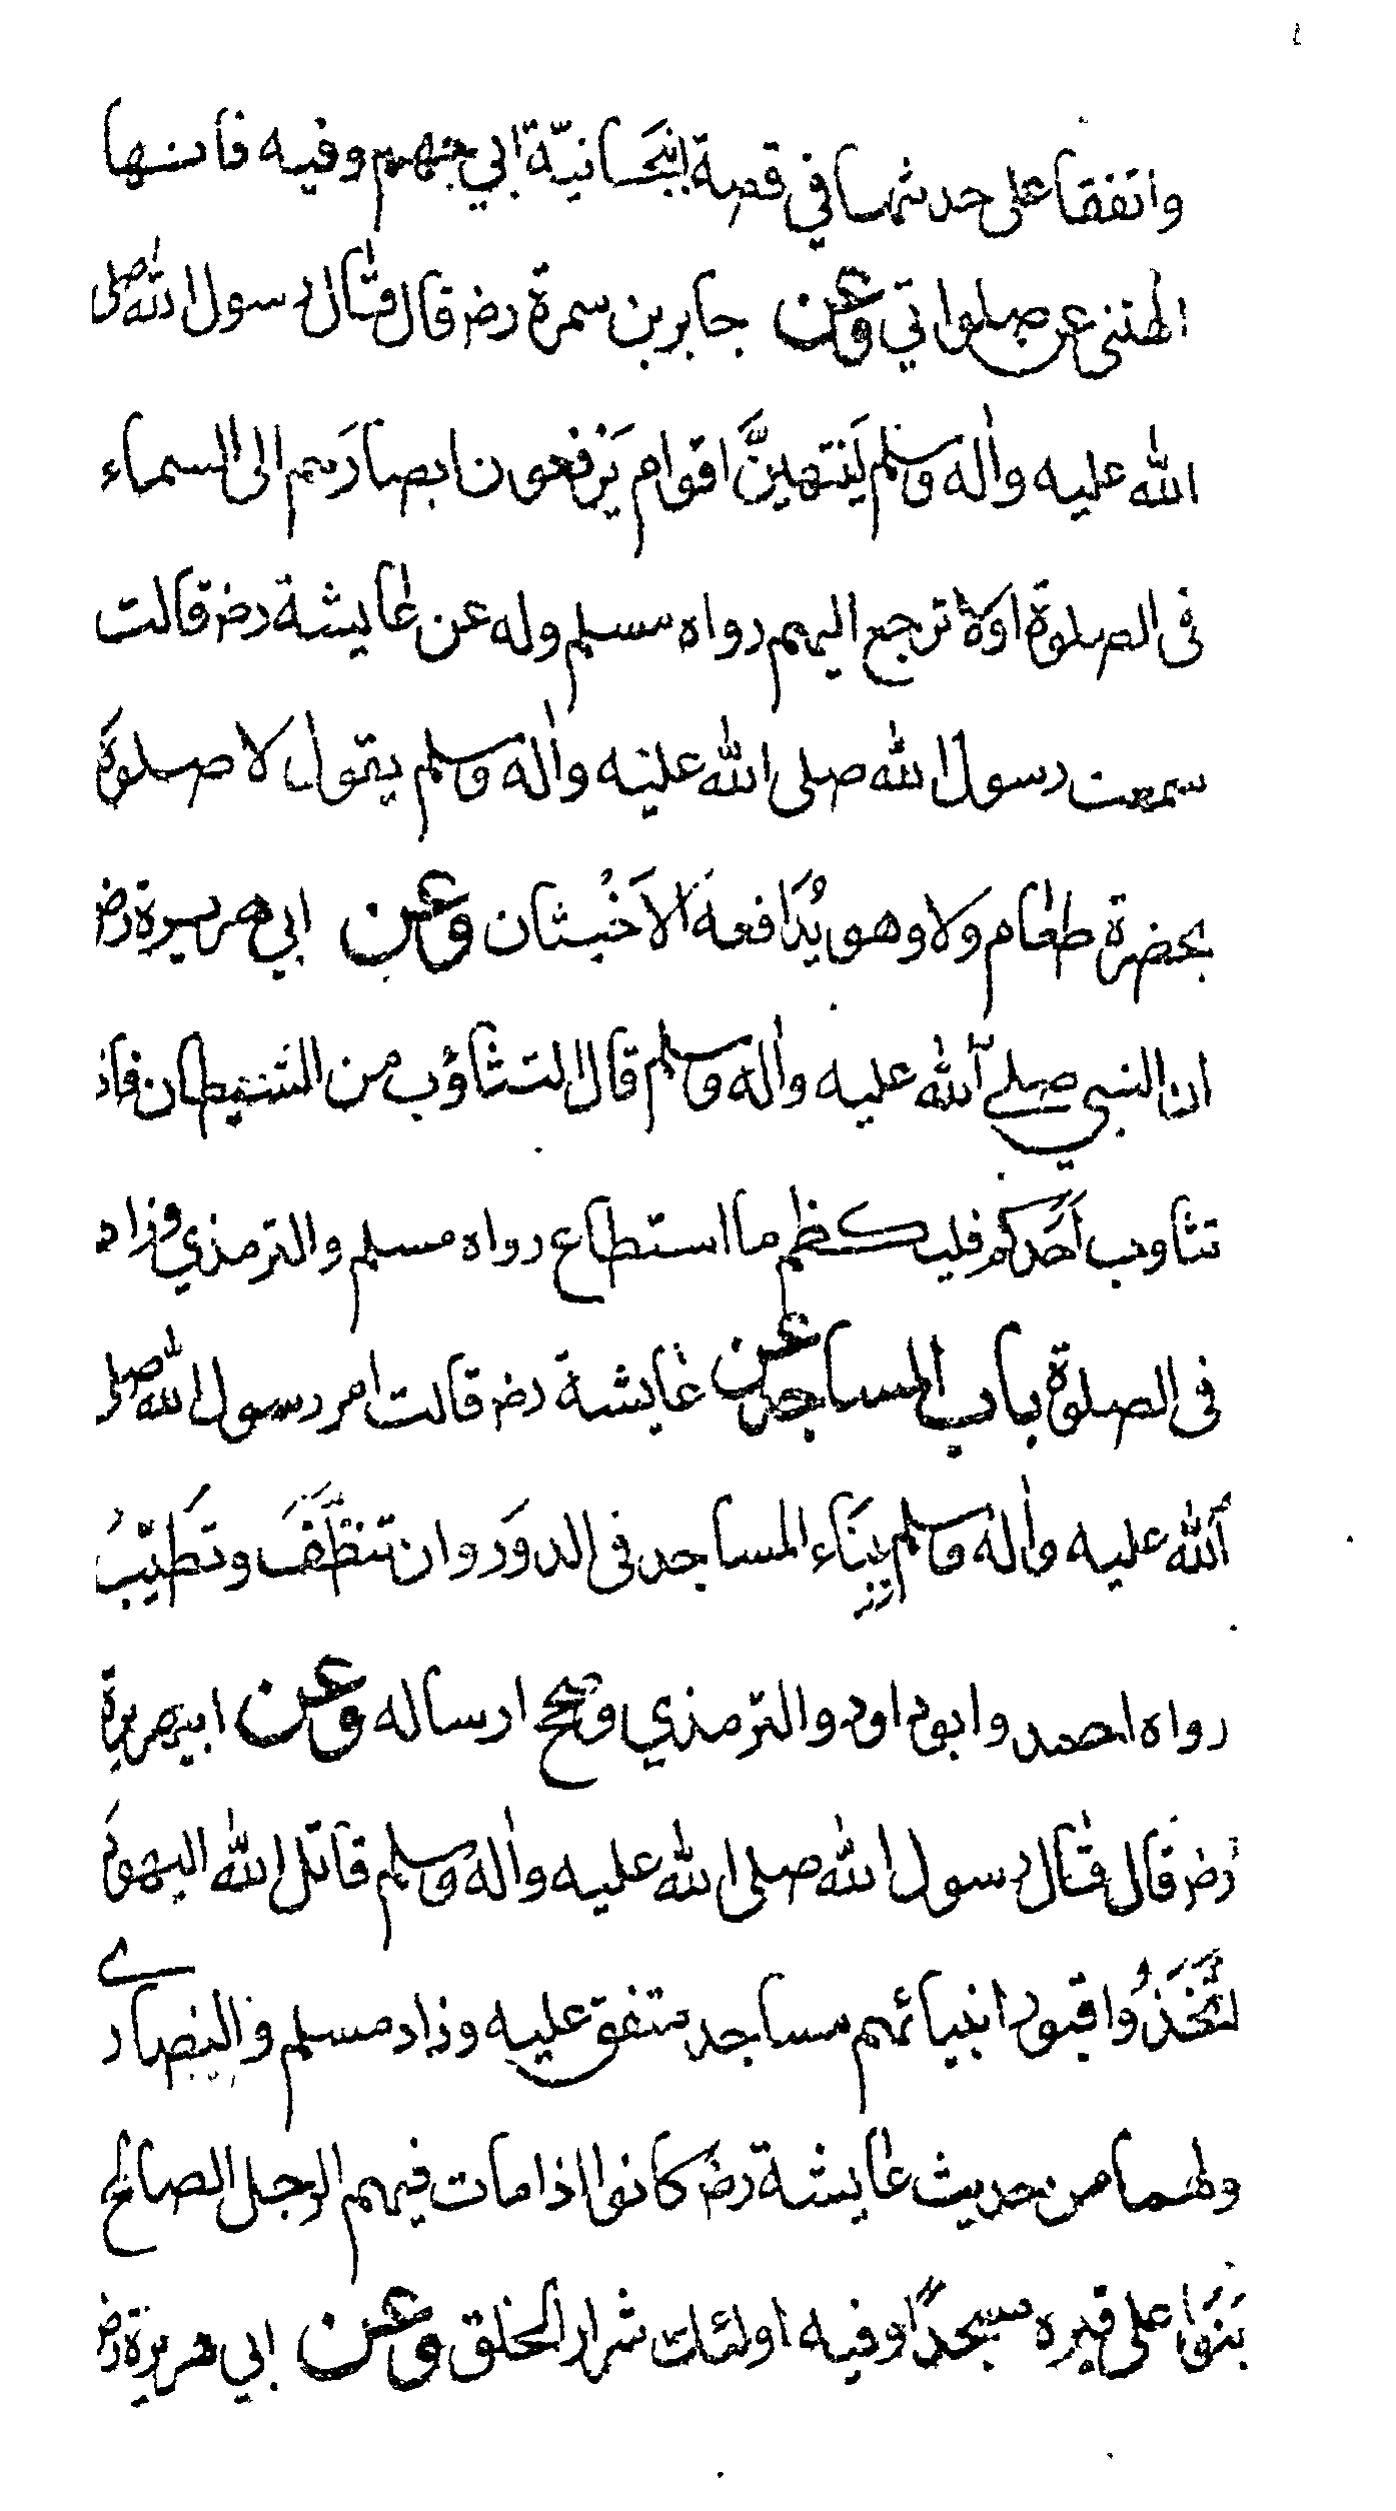 واتفقا على حديثها في قصة انبجانيّة ابي جهم وفيه فانها
الهتنى عن صلواتي وعن جابر بن سمرة رضر قال قال رسول الله صلى
الله عليه واله وسلم لَينتهينَّ اقوام يَرْفعون ابصارَهم الى السماء
فى الصلوة اولا ترجع اليهم رواه مسلم وله عن عايشة رضر قالت
سمعت رسول الله صلى الله عليه واله وسلم يقول لا صلوةَ
بحضرة طعام ولا وهو يُدَافعه الاَخْبثان وعن ابي هريرة رضر
ان النبي صلے الله عليه واله وسلم قال التثاؤب من الشيطان فاذ
تثاوب اَحَدكم فليكظم ما استطاع رواه مسلم والترمذي وزاد
فى الصلوة باب المساجد عن عايشة رضر قالت امر رسول الله صلى
الله عليه واله وسلم بِبنَاء المساجد فى الدوَر وان تنظَّفَ وتطَيّبُ
رواه احمد وابو داود والترمذي وصحح ارساله وعن ابيهريرة
رضر قال قال رسول الله صلى الله عليه واله وسلم قاتل الله اليهودَ
اتَّخَذُوا قبور انبيائهم مساجد متفق عليه وزاد مسلم والنصارے
ولهما من حديث عايشة رضر كانوا اذا مات فيهم الرجل الصالح
بَنَوا على قبره مسجدًا وفيه اولئك شرار الخلق وعن ابي هريرة رضر